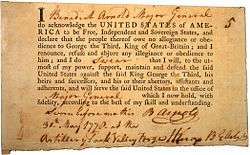 I Benedict Arnold Major General
do acknowledge the UNITED STATES of AME-
RICA to be Free, Independent and Sovereign States, and
declare that the people thereof owe no allegiance or obe-
dience to George the Third, King of Great-Britain; and I
renounce, refuse and abjure any allegiance or obedience to
him; and I do Swear that I will, to the ut-
most of my power, support, maintain and defend the said
United States against the said King George the Third, his
heirs and successors, and his or their abettors, assistants and
adherents, and will serve the said United States in the office of
Major General which I now hold, with
fidelity, according to the best of my skill and understanding.
Sworn before me this B Arnold
30th May 1778 at the
Artillery Park Valley Forge H Knox B G Artillery
5